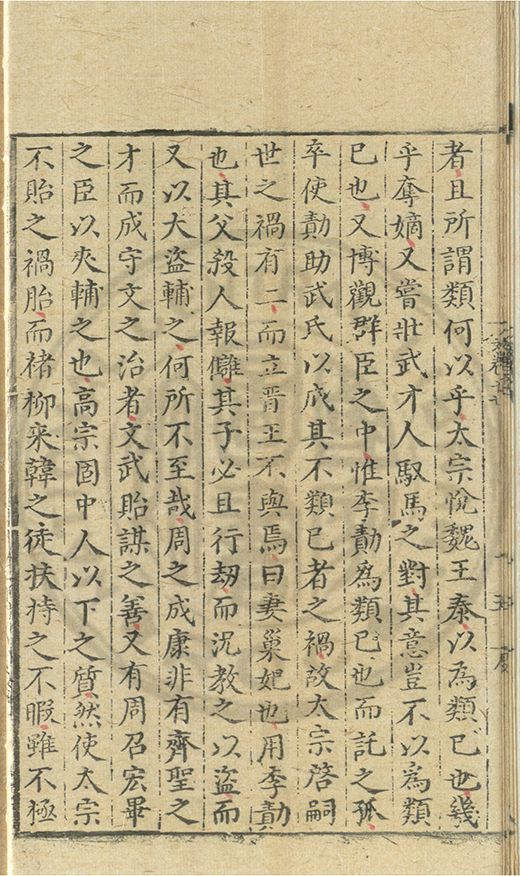 者且所謂類何以乎太宗悅魏王泰以為類已也幾
乎奪嫡又嘗壯武才人馭馬之對其意豈不以為類
已也又博觀群臣之中惟李勣為類已也而託之孤
卒使勣助武氏以成其不類已者之禍故太宗啓嗣
世之禍有二而立晋王不與焉曰妻巢妃也用李勣
也其父殺人報讎其子必且行刼而況教之以盜而
又以大盜輔之何所不至哉周之成康非有齊聖之
才而成守文之治者文武貽謀之善又有周召宏畢
之臣以夾輔之也高宗固中人以下之質然使太宗
不貽之禍胎而禇柳来韓之徒扶持之不暇雖不極